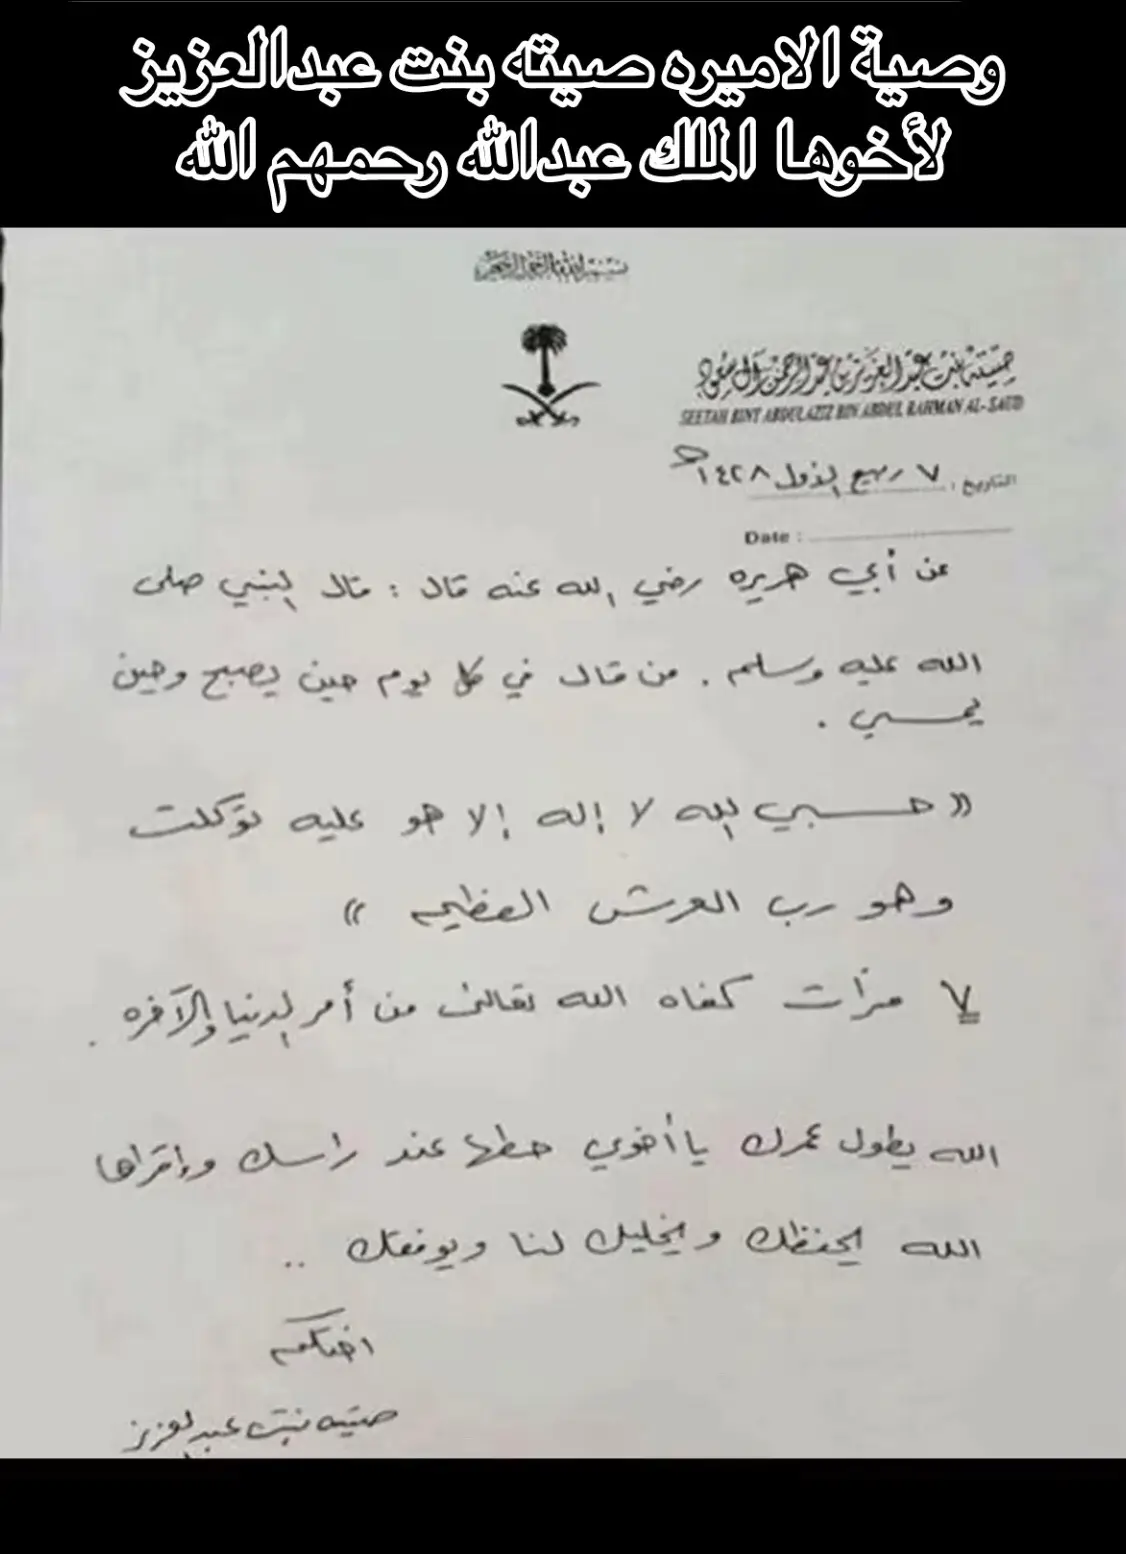 وصية الاميره صيته بنت عبدالعزيز
لأخوها الملك عبدالله رحمهم الله
بسم الله الرحمن الرحيم
صيته بنت عبد العزيز بن عبد الرحمن آل سعود
SEETAH BINT ABDULAZIZ BIN ABDUL RAHMAN AL-SAUD
التاريخ : ٧ ربيع الاول ١٤٢٨هـ
Date :
عن أبي هريره رضي الله عنه قال : قال النبي صلى
الله عليه وسلم . من قال في كل يوم حين يصبح وحين
يمسي .
« حسبي الله لا إله إلا هو عليه توكلت
وهو رب العرش العظيم »
٧ مرات كفاه الله تعالى من أمر الدنيا والآخره .
الله يطول عمرك يا أخوي حطها عند راسك وإقراها
الله يحفظك ويخليك لنا ويوفقك ..
اختكم
صيته بنت عبدالعزيز